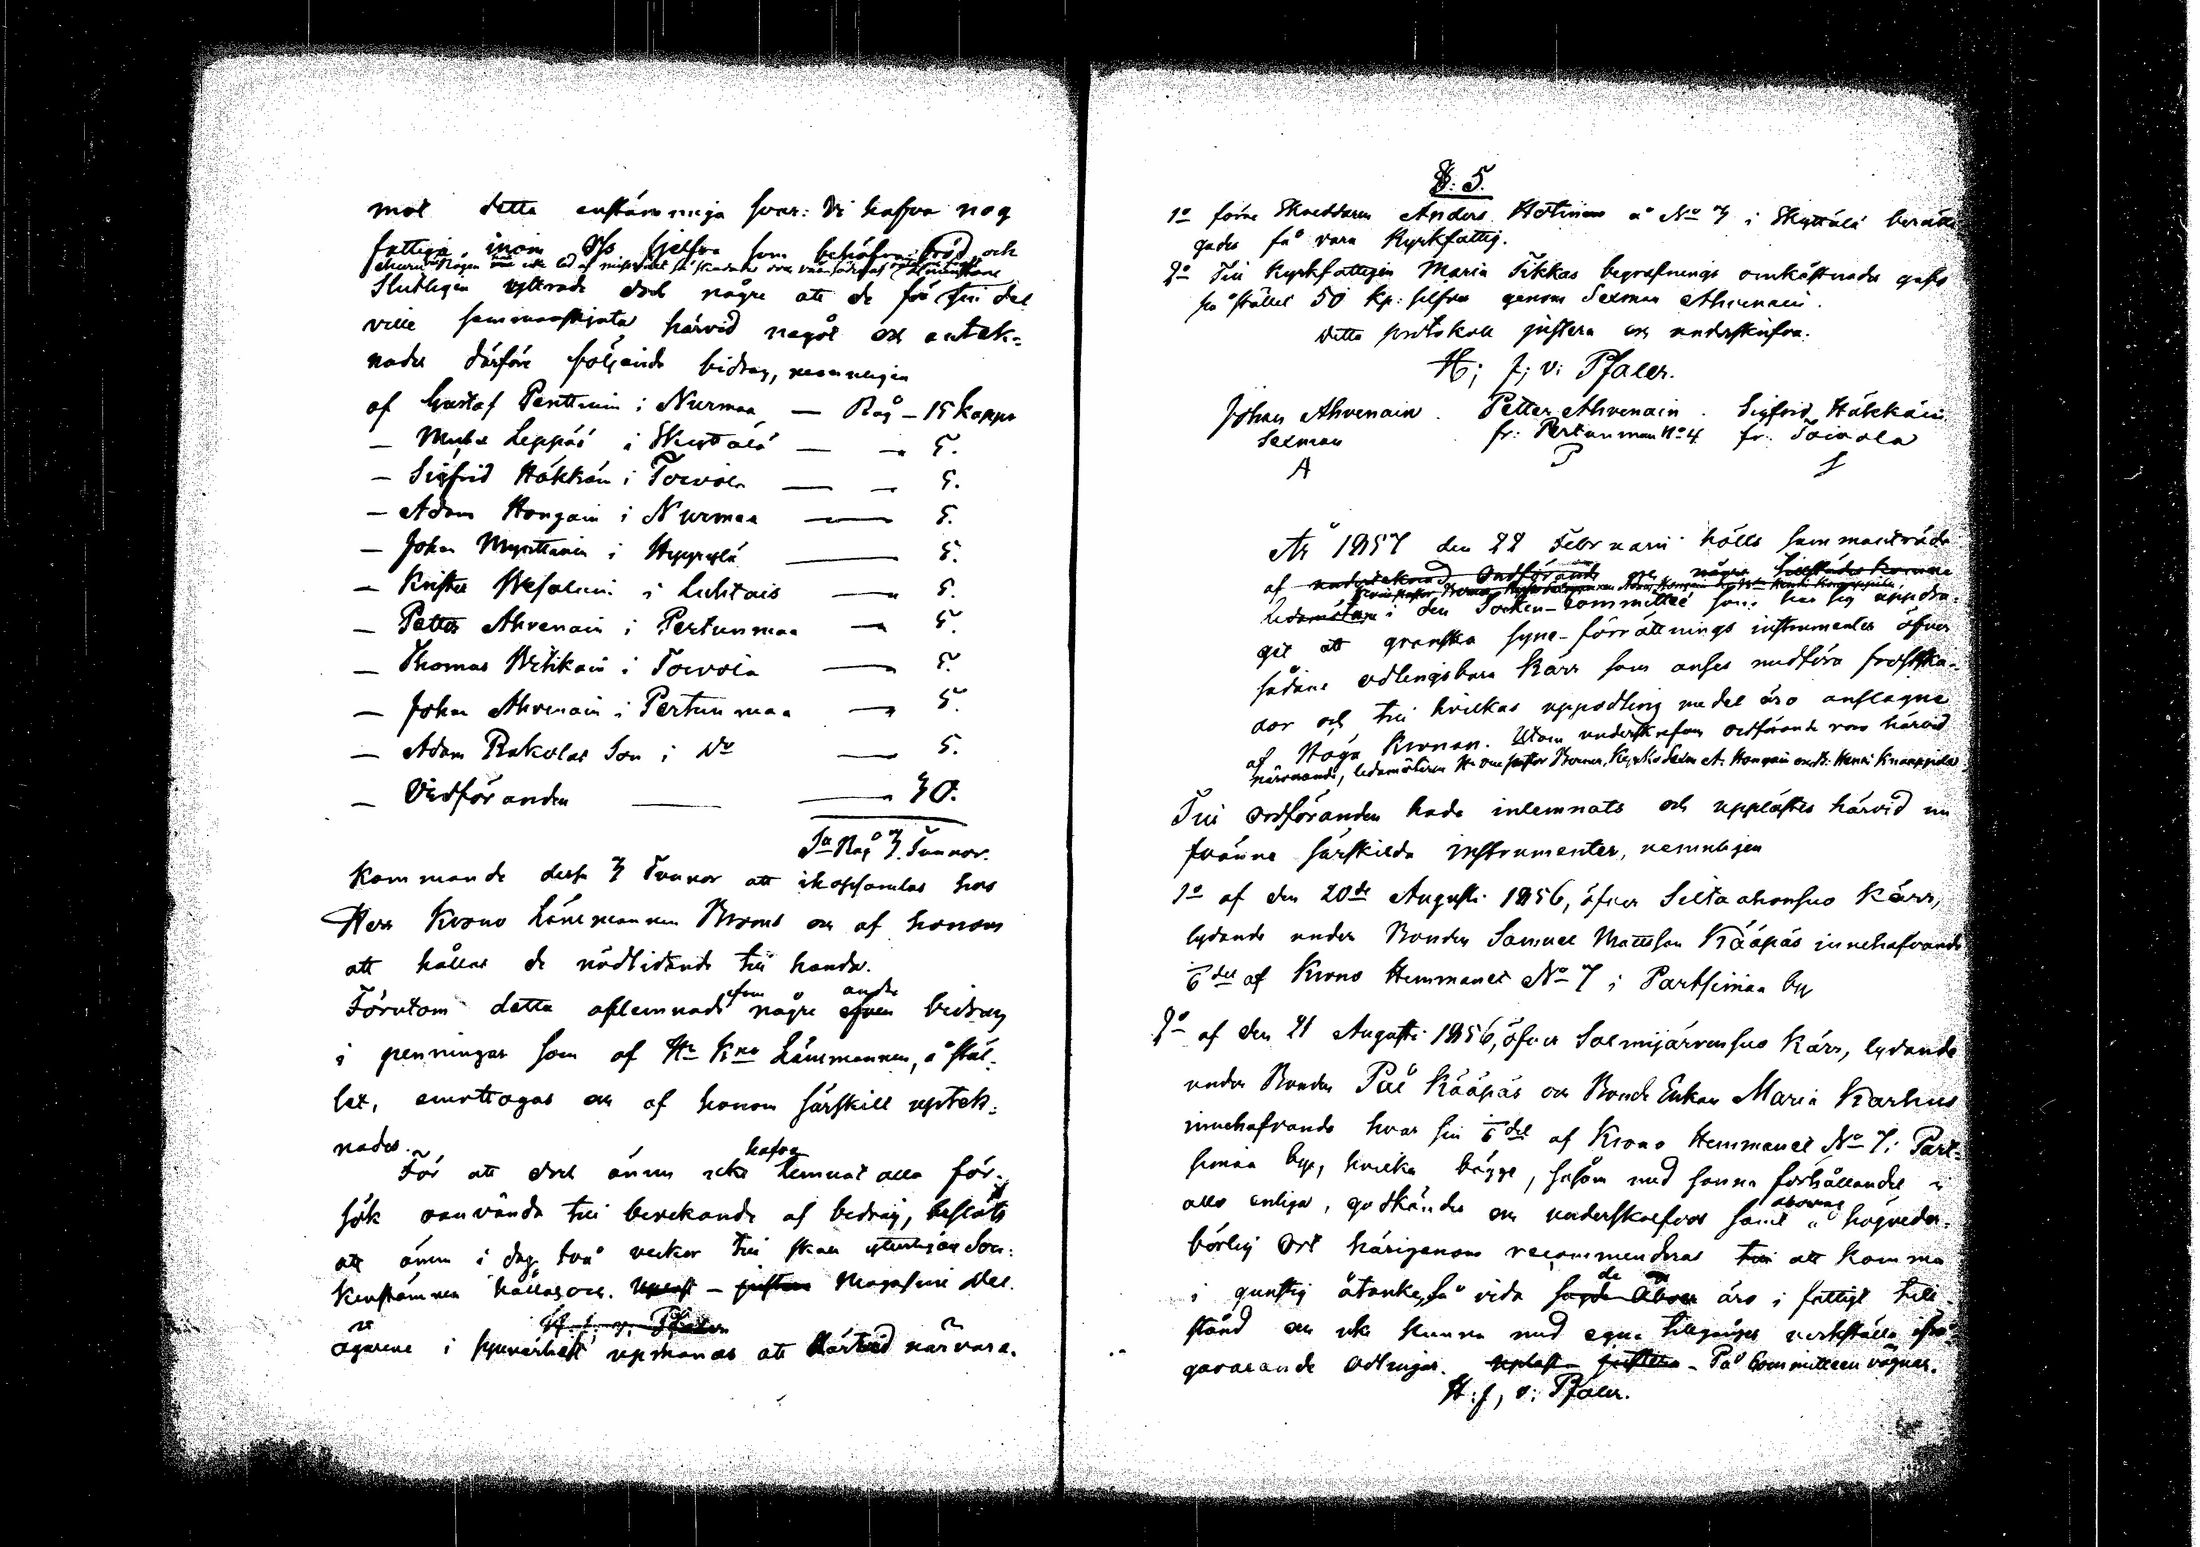 mot detta enstämmiga svar: Vi hafva nog
fattiga inom Oss sjelfva som behöfva bröd och
Slutligen yttrade dock någre att de för sin del
ville sammanskjuta härvid något och antek-
nades därföre följande bidrag, nemnligen
af Gustaf Penttinin i Nurmaa — Råg — 15 kappr
— Leppää i Skyttälä — — 5.
— Sigfrid Häkkäin i Toivola — — 5.
— Adam Hongain i Nurmaa — 5.
— Johan Myrttinin i Hyyrylä — 5.
— Krister Vesalain i Luhtais — 5.
— Petter Ahvenain i Pertunmaa — 5.
— Thomas i Toivola — 5.
— Johan Ahvenain i Pertunmaa — 5.
— Adam Rakolas Son i Do — 5.
— Ordföranden — — 30.
Sa Råg 3. Tunnor.
Kommande dessa 3 Tunnor att ihopsamlas hos
Herr Krono Länsmannen Broms och af honom
att hållas de nödlidande till handa.
Förutom detta aflemnade efven någre efven andre bidrag
i penningar som af Hr Kno Länsmannen, å stäl-
let, emottagas och af honom särskilt uptek-
nades.
För att dock ännu icke hafva lemnat alla för-
sök oanvända till bevekande af bidrag, beslöts
att ännu i dag två veckor till skall ytterligare Soc-
kenstämma hållas och. Upläst — justera Magasins Del
H. J. v. Pfaler
ägarene i synnerhet upmanas att härtid närvara.
§: 5.
1o förra Skräddaren Anders Hotinen å No 3 i Skyttälä berätti-
gades få vara Kyrkfattig.
2o Till Kyrkfattigen Maria Tikkas begrafnings omkåstnader gafs
på stället 50 kp: silfver genom Sexman Ahvenain.
Detta protokoll justera och underskrifva.
H; J; v: Pfaler.
Johan Ahvenain . Petter Ahvenain . Sigfrid Häkkäin
Sexman fr: Pertunmaa No 4 fr: Toivola
A P S
År 1857 den 22 Februarii hölls sammanträde
af undertecknad Ordförande och någre
Ledamöter i den Socken-Committee som har sig updra-
git att granska syne-förrättnings instrumenter öfver
sådane odlingsbara Kärr som anses medföra frostska-
dor och till hvilkas uppodling medel äro anslagne
af Höga Kronan. Utom underskrefven ordförande voro härvid
närvarande, ledamöterne Hr Broms, Kyrko Sexm A. Hongain och Henric Knaappila.
Till ordföranden hade inlemnats och upplästes härvid nu
tvänne särskilda instrumenter, nemnligen
1o af den 20de Augusti 1856, öfver Siltaahonsuo Kärr,
lydande under Bonden Samuel Mattsson Kääpäs innehafvande
1/6 del af Krono Hemmanet No 7 i Partsimaa by
2o af den 21 Augusti 1856, öfver Salmijärvensuo Kärr, lydande
under Bonden Pål Kääpäs och Bonde Enkan Maria Karhus
innehafvande hvar sin 1/6 del af Krono Hemmanet No 7 i Part-
simaa by, hvilka bägge, såsom med sanna förhållandet i
allo enliga, godkändes och underskrefvos samt å högveder-
börlig Ort härigenom recommenderas till att komma
i gunstig åtanke, så vida de äro i fattigt till-
stånd och icke kunna med egna tillgångar verkställa ifrå-
gavarande odlingar. Upläst justera — På Committeen vägnar.
H: J, v: Pfaler.